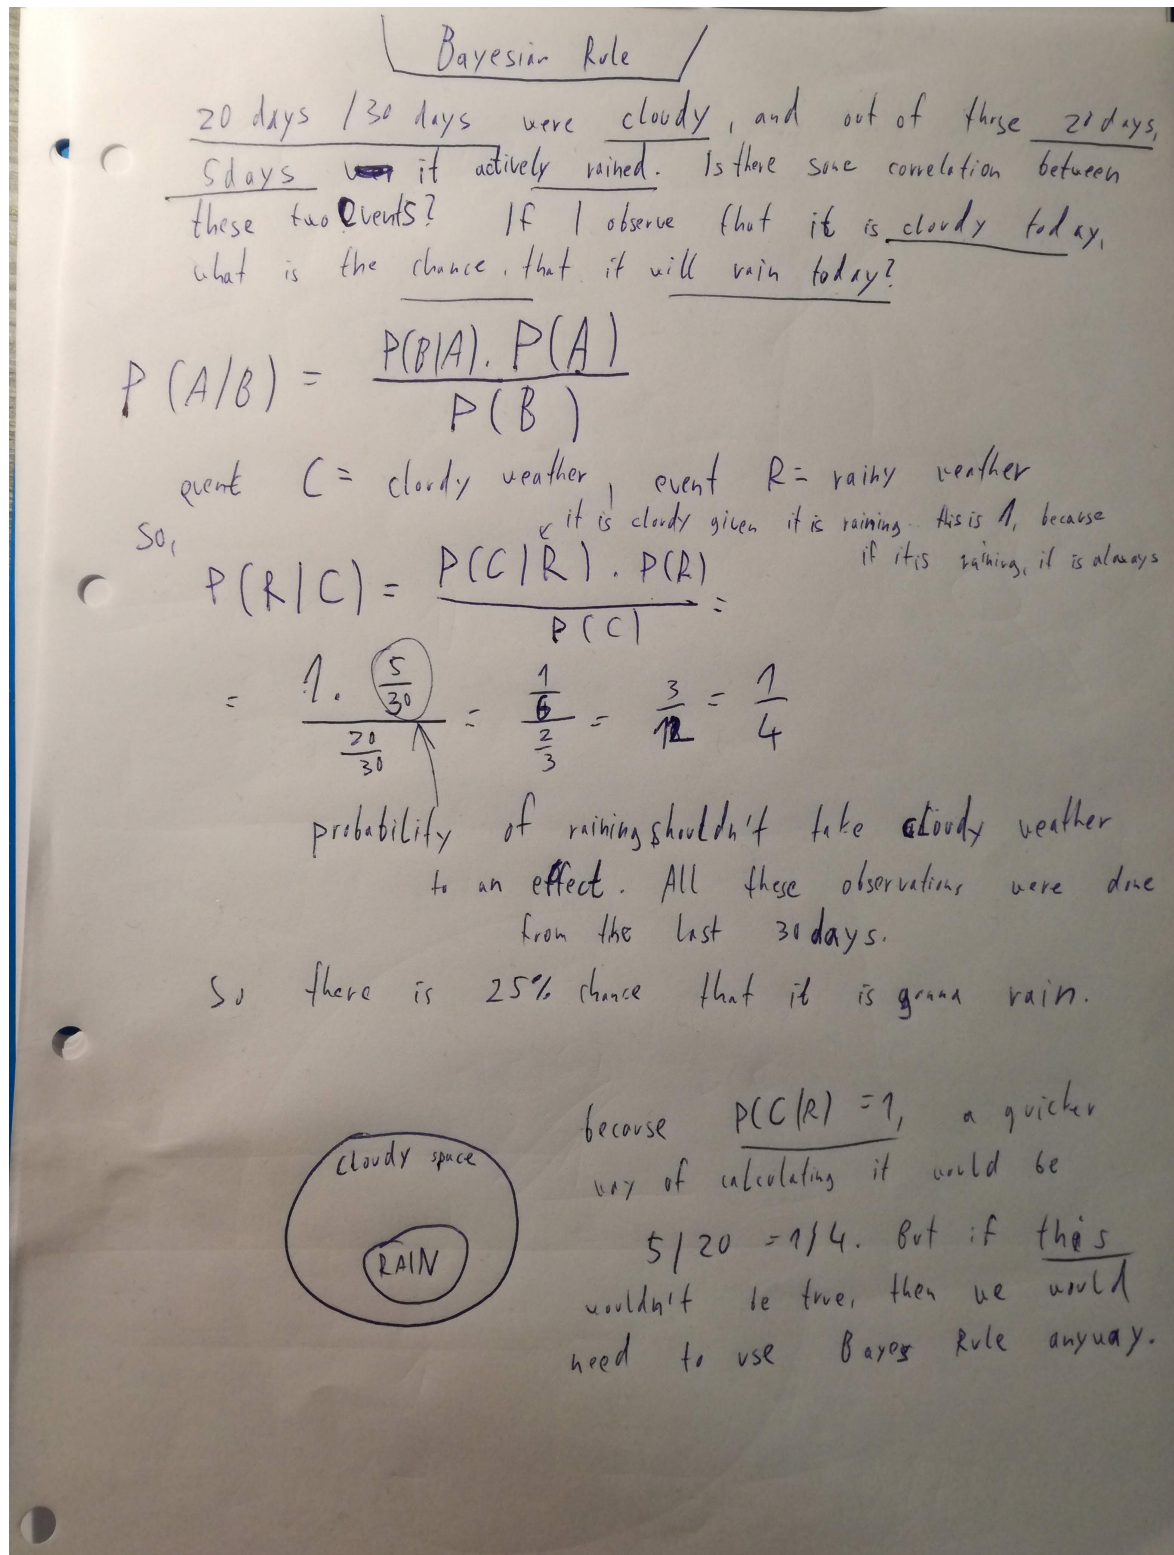 Bayesian Rule
20 days / 30 days were cloudy, and out of those 20 days,
5 days it actively rained. Is there some correlation between
these two events? If I observe that it is cloudy today,
what is the chance, that it will rain today?
P(A/B) = P(B|A). P(A) / P(B)
event C = cloudy weather, event R = rainy weather
it is cloudy given it is raining. this is 1, because
if it is raining, it is always
So,
P(R|C) = P(C|R). P(R) / P(C) =
= 1. 5/30 / 20/30 = 1/6 / 2/3 = 3/12 = 1/4
probability of raining shouldn't take cloudy weather
to an effect. All these observations were done
from the last 30 days.
So there is 25% chance that it is gonna rain.
because P(C/R) = 1, a quicker
way of calculating it would be
5/20 = 1/4. But if this
wouldn't be true, then we would
need to use Bayes Rule anyway.
cloudy space
RAIN